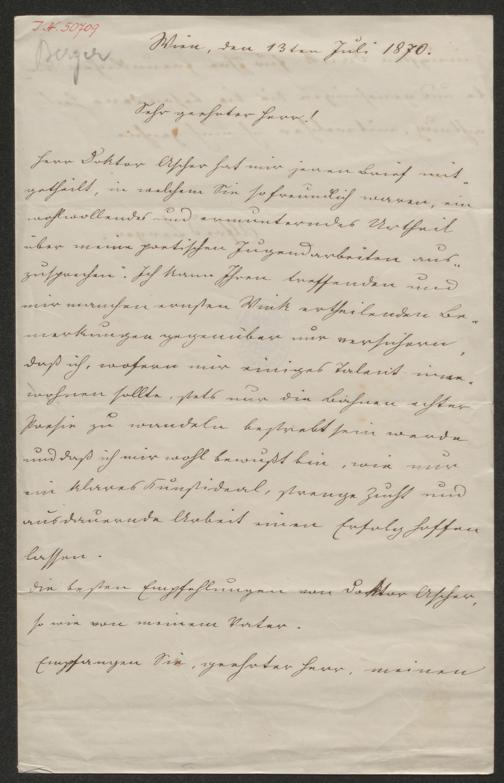 I.N. 50709
Berger
Wien, den 13ten Juli 1870.
Sehr geehrter Herr!
Herr Doktor Ascher hat mir jenen Brief mit-
getheilt, in welchem Sie so freundlich waren, ein
wohlwollendes und ermunterndes Urtheil
über meine poetischen Jugendarbeiten aus-
zusprechen. Ich kann Ihren treffenden und
mir manchen ernsten Wink ertheilenden Be-
merkungen gegenüber nur versichern,
daß ich, wofern mir einiges Talent inne-
wohnen sollte, stets nur die Bahnen echter
Poesie zu wandeln bestrebt sein werde
und daß ich mir wohl bewußt bin, wie nur
ein klares Kunstideal, strenge Zucht und
ausdauernde Arbeit einen Erfolg hoffen
lassen.
Die besten Empfehlungen von Doktor Ascher,
so wie von meinem Vater.
Empfangen Sie, geehrter Herr, meinen